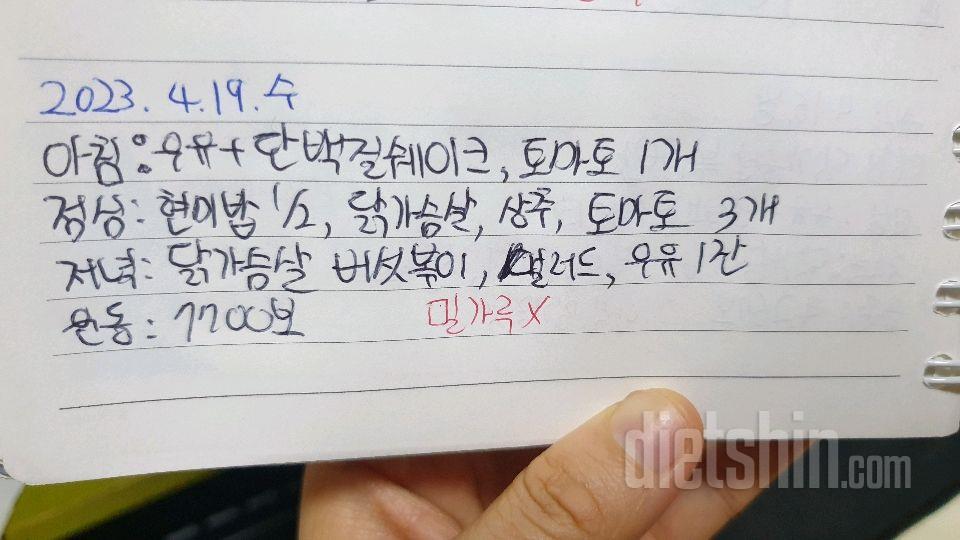 2023. 4.19.수
아침: 우유+단백질쉐이크, 토마토 1개
점심: 현미밥 1/2, 닭가슴살, 상추, 토마토 3개
저녁: 닭가슴살 버섯볶이, 샐러드, 우유1잔
운동: 7700보 밀가루X
dietshin.com